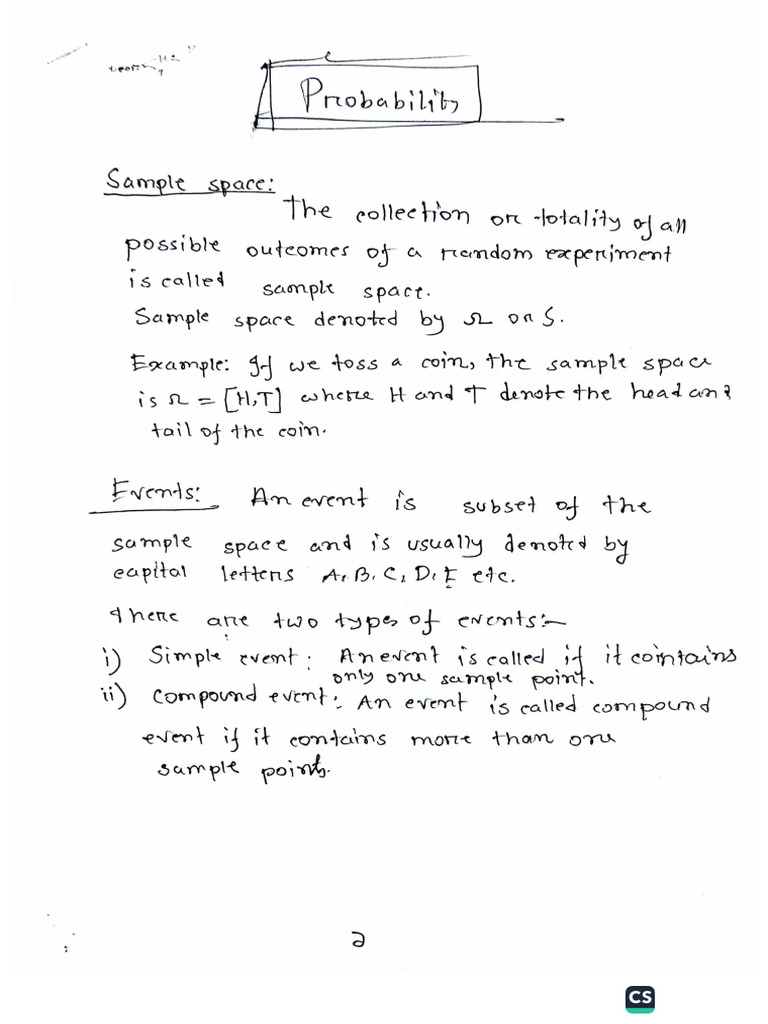 Probability
Sample space:
The collection or totality of all
possible outcomes of a random experiment
is called sample space.
Sample space denoted by Ω or S.
Example: If we toss a coin, the sample space
is Ω = [H,T] where H and T denote the head and
tail of the coin.
Events: An event is subset of the
sample space and is usually denoted by
capital letters A, B, C, D, E etc.
There are two types of events:-
i) Simple event: An event is called if it cointains
only one sample point.
ii) Compound event: An event is called compound
event if it contains more than one
sample points.
2
CS